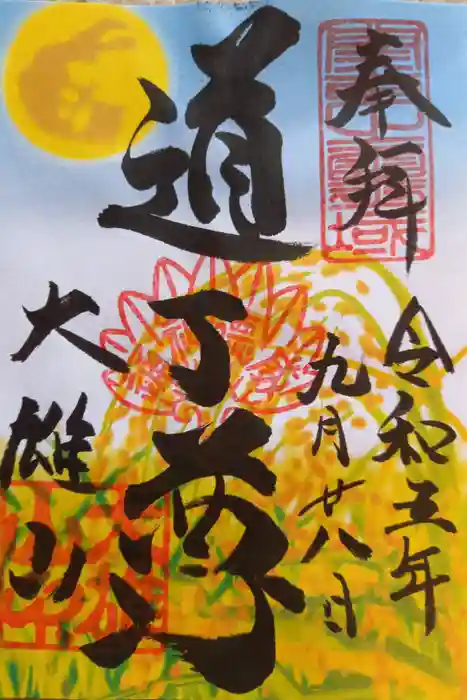 奉拝
令和五年
九月廿八日
道了尊
大雄山